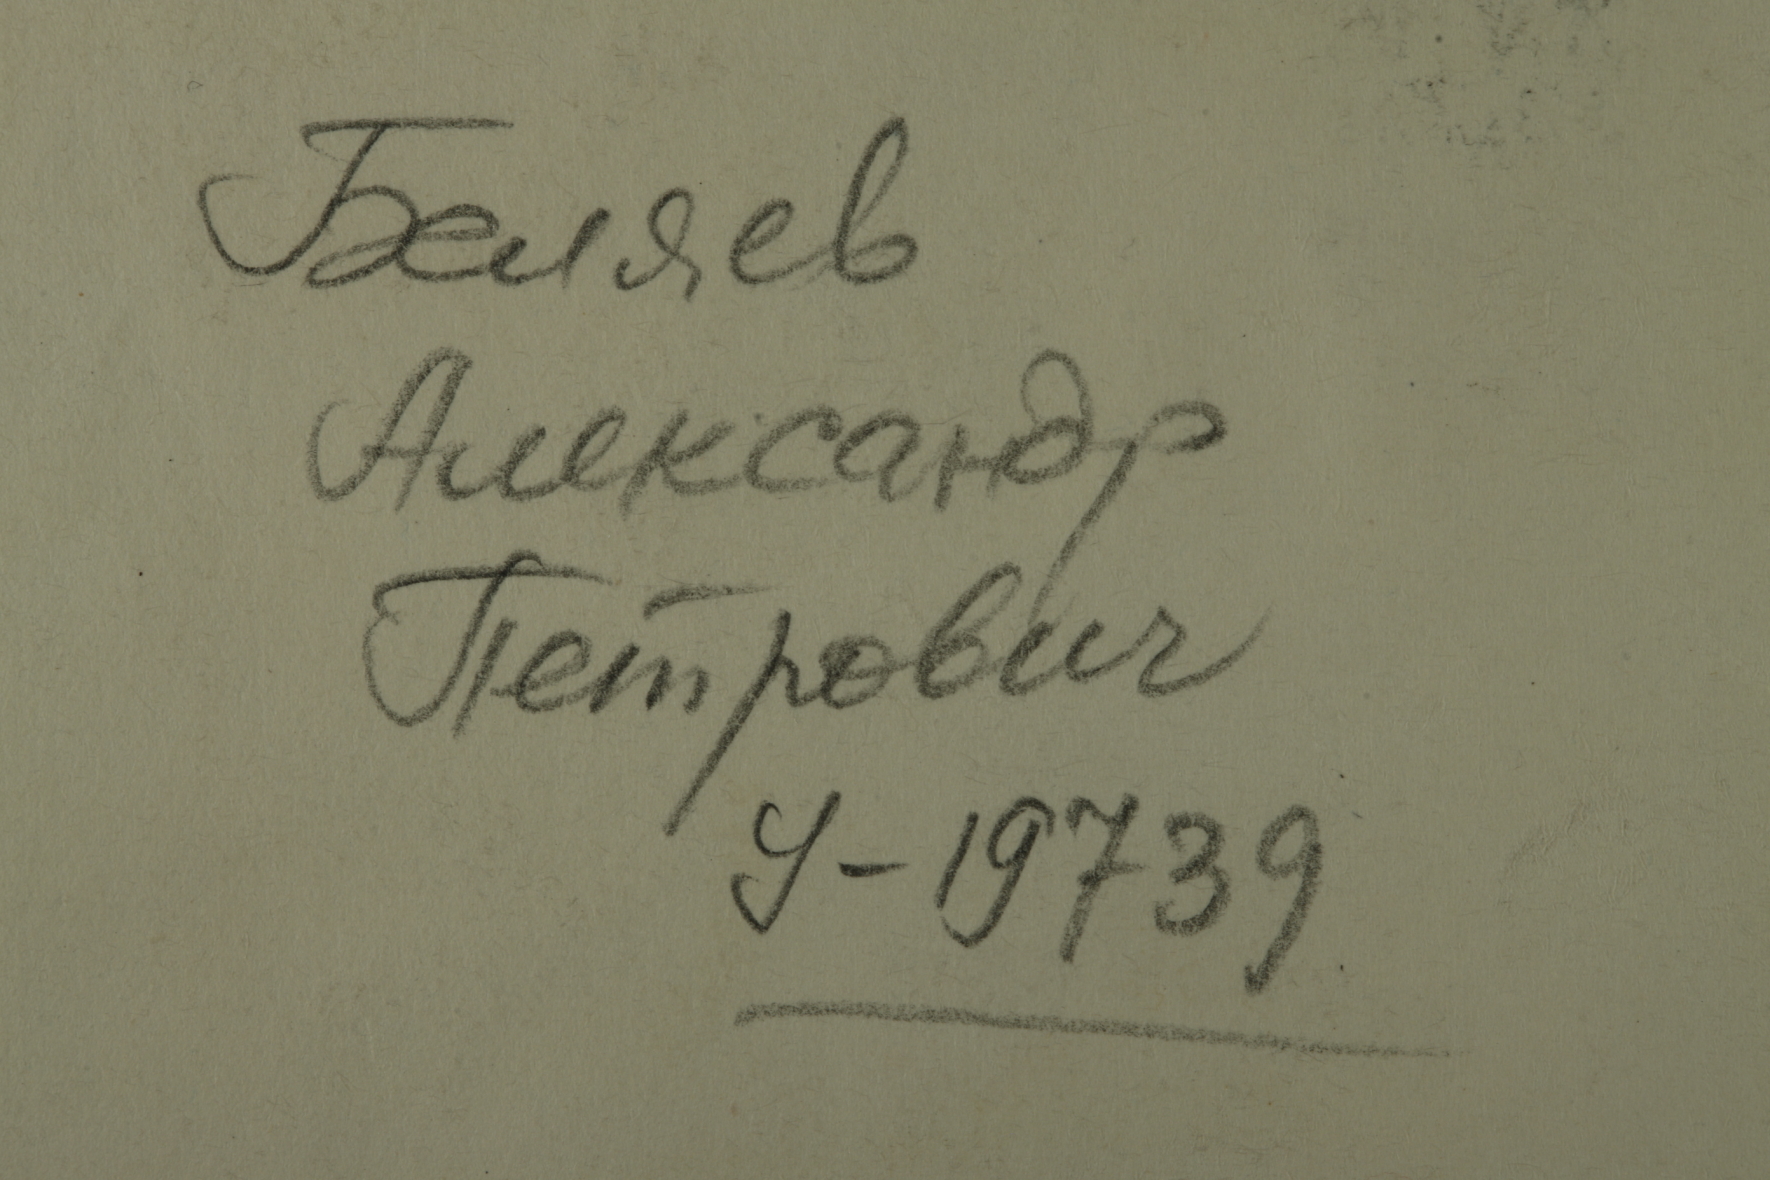 Беляев
Александр
Петрович
У-19739